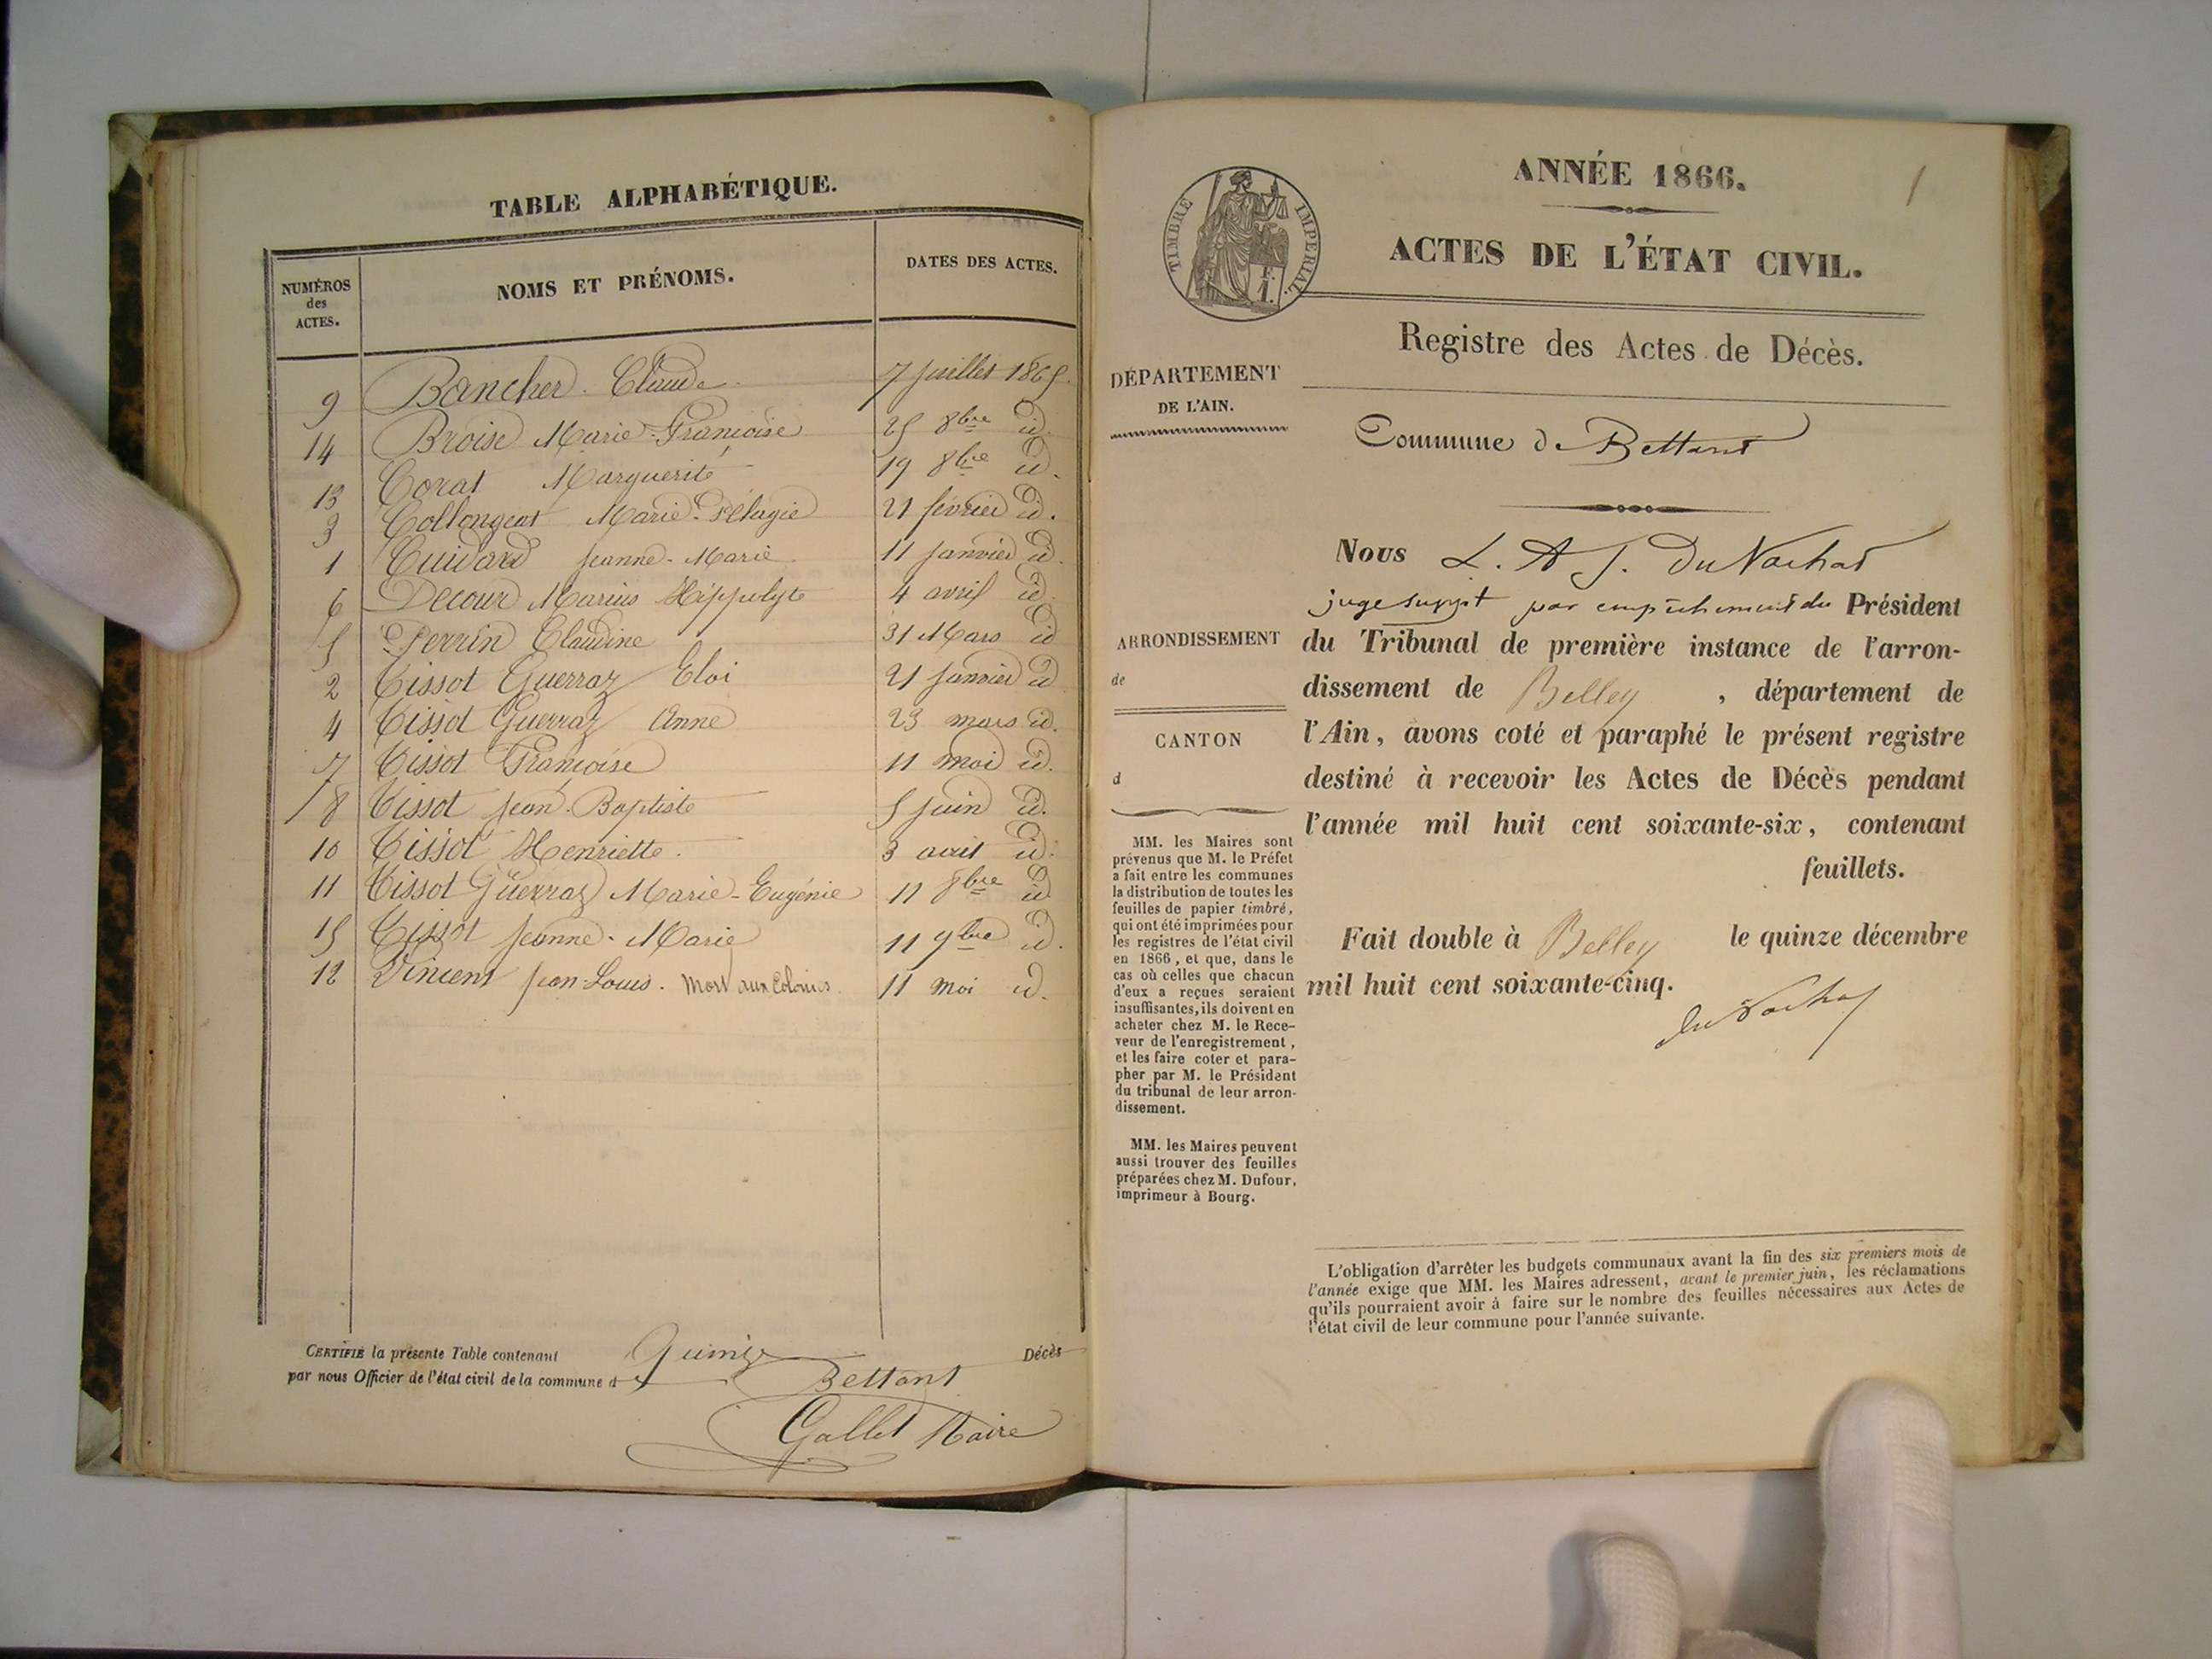 TABLE ALPHABÉTIQUE.
NUMÉROS
des
ACTES.
NOMS ET PRÉNOMS.
DATES DES ACTES.
9 Bancher Claude 7 juillet 1865.
14 Broise Marie-Françoise 25 8bre id.
13 Corat Marguerite 19 8bre id.
3 Collongeat Marie-Pélagie 21 février id.
1 Cuidard Jeanne-Marie 11 janvier id.
6 Decour Marius Hippolyte 4 avril id.
5 Perrin Claudine 31 Mars id
2 Tissot Guerraz Eloi 21 janvier id
4 Tissot Guerraz Anne 23 mars id.
7 Tissot Françoise 11 mai id.
8 Tissot Jean-Baptiste 5 juin id.
10 Tissot Henriette. 3 aout id.
11 Tissot Guerraz Marie-Eugénie 11 8bre id
15 Tissot Jeanne-Marie 11 9bre id.
12 Vincent Jean-Louis. Mort aux Colonies. 11 mai id.
CERTIFIÉ la présente Table contenant Quinze Décès
par nous Officier de l'état civil de la commune d Bettant
Gallet Maire
1
ANNÉE 1866.
TIMBRE IMPÉRIAL.
ACTES DE L'ÉTAT CIVIL.
Registre des Actes de Décès.
DÉPARTEMENT
DE L'AIN.
Commune de Bettant
Nous L. A J. Du Nachat
juge suppt par empêchement du Président
ARRONDISSEMENT
de
du Tribunal de première instance de l'arron-
dissement de Belley, département de
l'Ain, avons coté et paraphé le présent registre
destiné à recevoir les Actes de Décès pendant
l'année mil huit cent soixante-six, contenant
feuillets.
CANTON
d
Fait double à Belley le quinze décembre
mil huit cent soixante-cinq.
du Nachat
MM. les Maires sont
prévenus que M. le Préfet
a fait entre les communes
la distribution de toutes les
feuilles de papier timbré,
qui ont été imprimées pour
les registres de l'état civil
en 1866, et que, dans le
cas où celles que chacun
d'eux a reçues seraient
insuffisantes, ils doivent en
acheter chez M. le Rece-
veur de l'enregistrement,
et les faire coter et para-
pher par M. le Président
du tribunal de leur arron-
dissement.
MM. les Maires peuvent
aussi trouver des feuilles
préparées chez M. Dufour,
imprimeur à Bourg.
L'obligation d'arrêter les budgets communaux avant la fin des six premiers mois de
l'année exige que MM. les Maires adressent, avant le premier juin, les réclamations
qu'ils pourraient avoir à faire sur le nombre des feuilles nécessaires aux Actes de
l'état civil de leur commune pour l'année suivante.